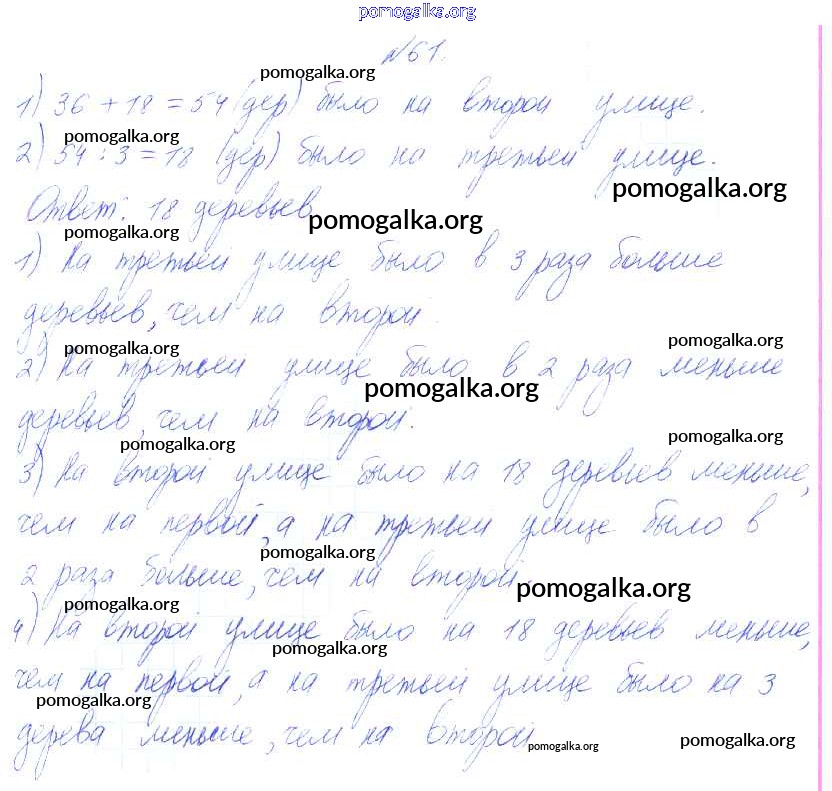 pomogalka.org
№61.
pomogalka.org
1) 36 + 18 = 54 (дер) было на второй улице.
pomogalka.org
2) 54 : 3 = 18 (дер) было на третьей улице.
pomogalka.org
Ответ: 18 деревьев
pomogalka.org
pomogalka.org
1) На третьей улице было в 3 раза больше
деревьев, чем на второй.
pomogalka.org
pomogalka.org
2) На третьей улице было в 2 раза меньше
pomogalka.org
деревьев, чем на второй.
pomogalka.org
pomogalka.org
3) На второй улице было на 18 деревьев меньше,
чем на первой, а на третьей улице было в
pomogalka.org
2 раза больше, чем на второй.
pomogalka.org
pomogalka.org
4) На второй улице было на 18 деревьев меньше,
pomogalka.org
чем на первой, а на третьей улице было на 3
pomogalka.org
дерева меньше, чем на второй.
pomogalka.org
pomogalka.org